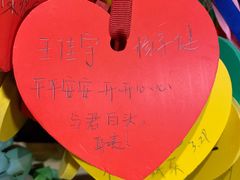 王佳宇 杨子健
平平安安 开开心心
与君白头
3.28